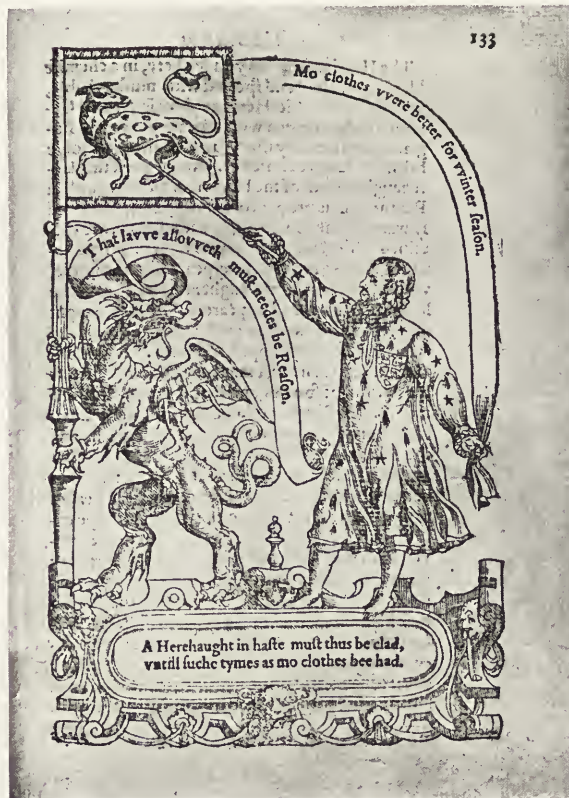 133
Mo clothes vvere better for vvinter ſeaſon.
That lavve allovveth muſt needes be Reaſon.
A Herehaught in haſte muſt thus be clad,
vntill ſuche tymes as mo clothes bee had.